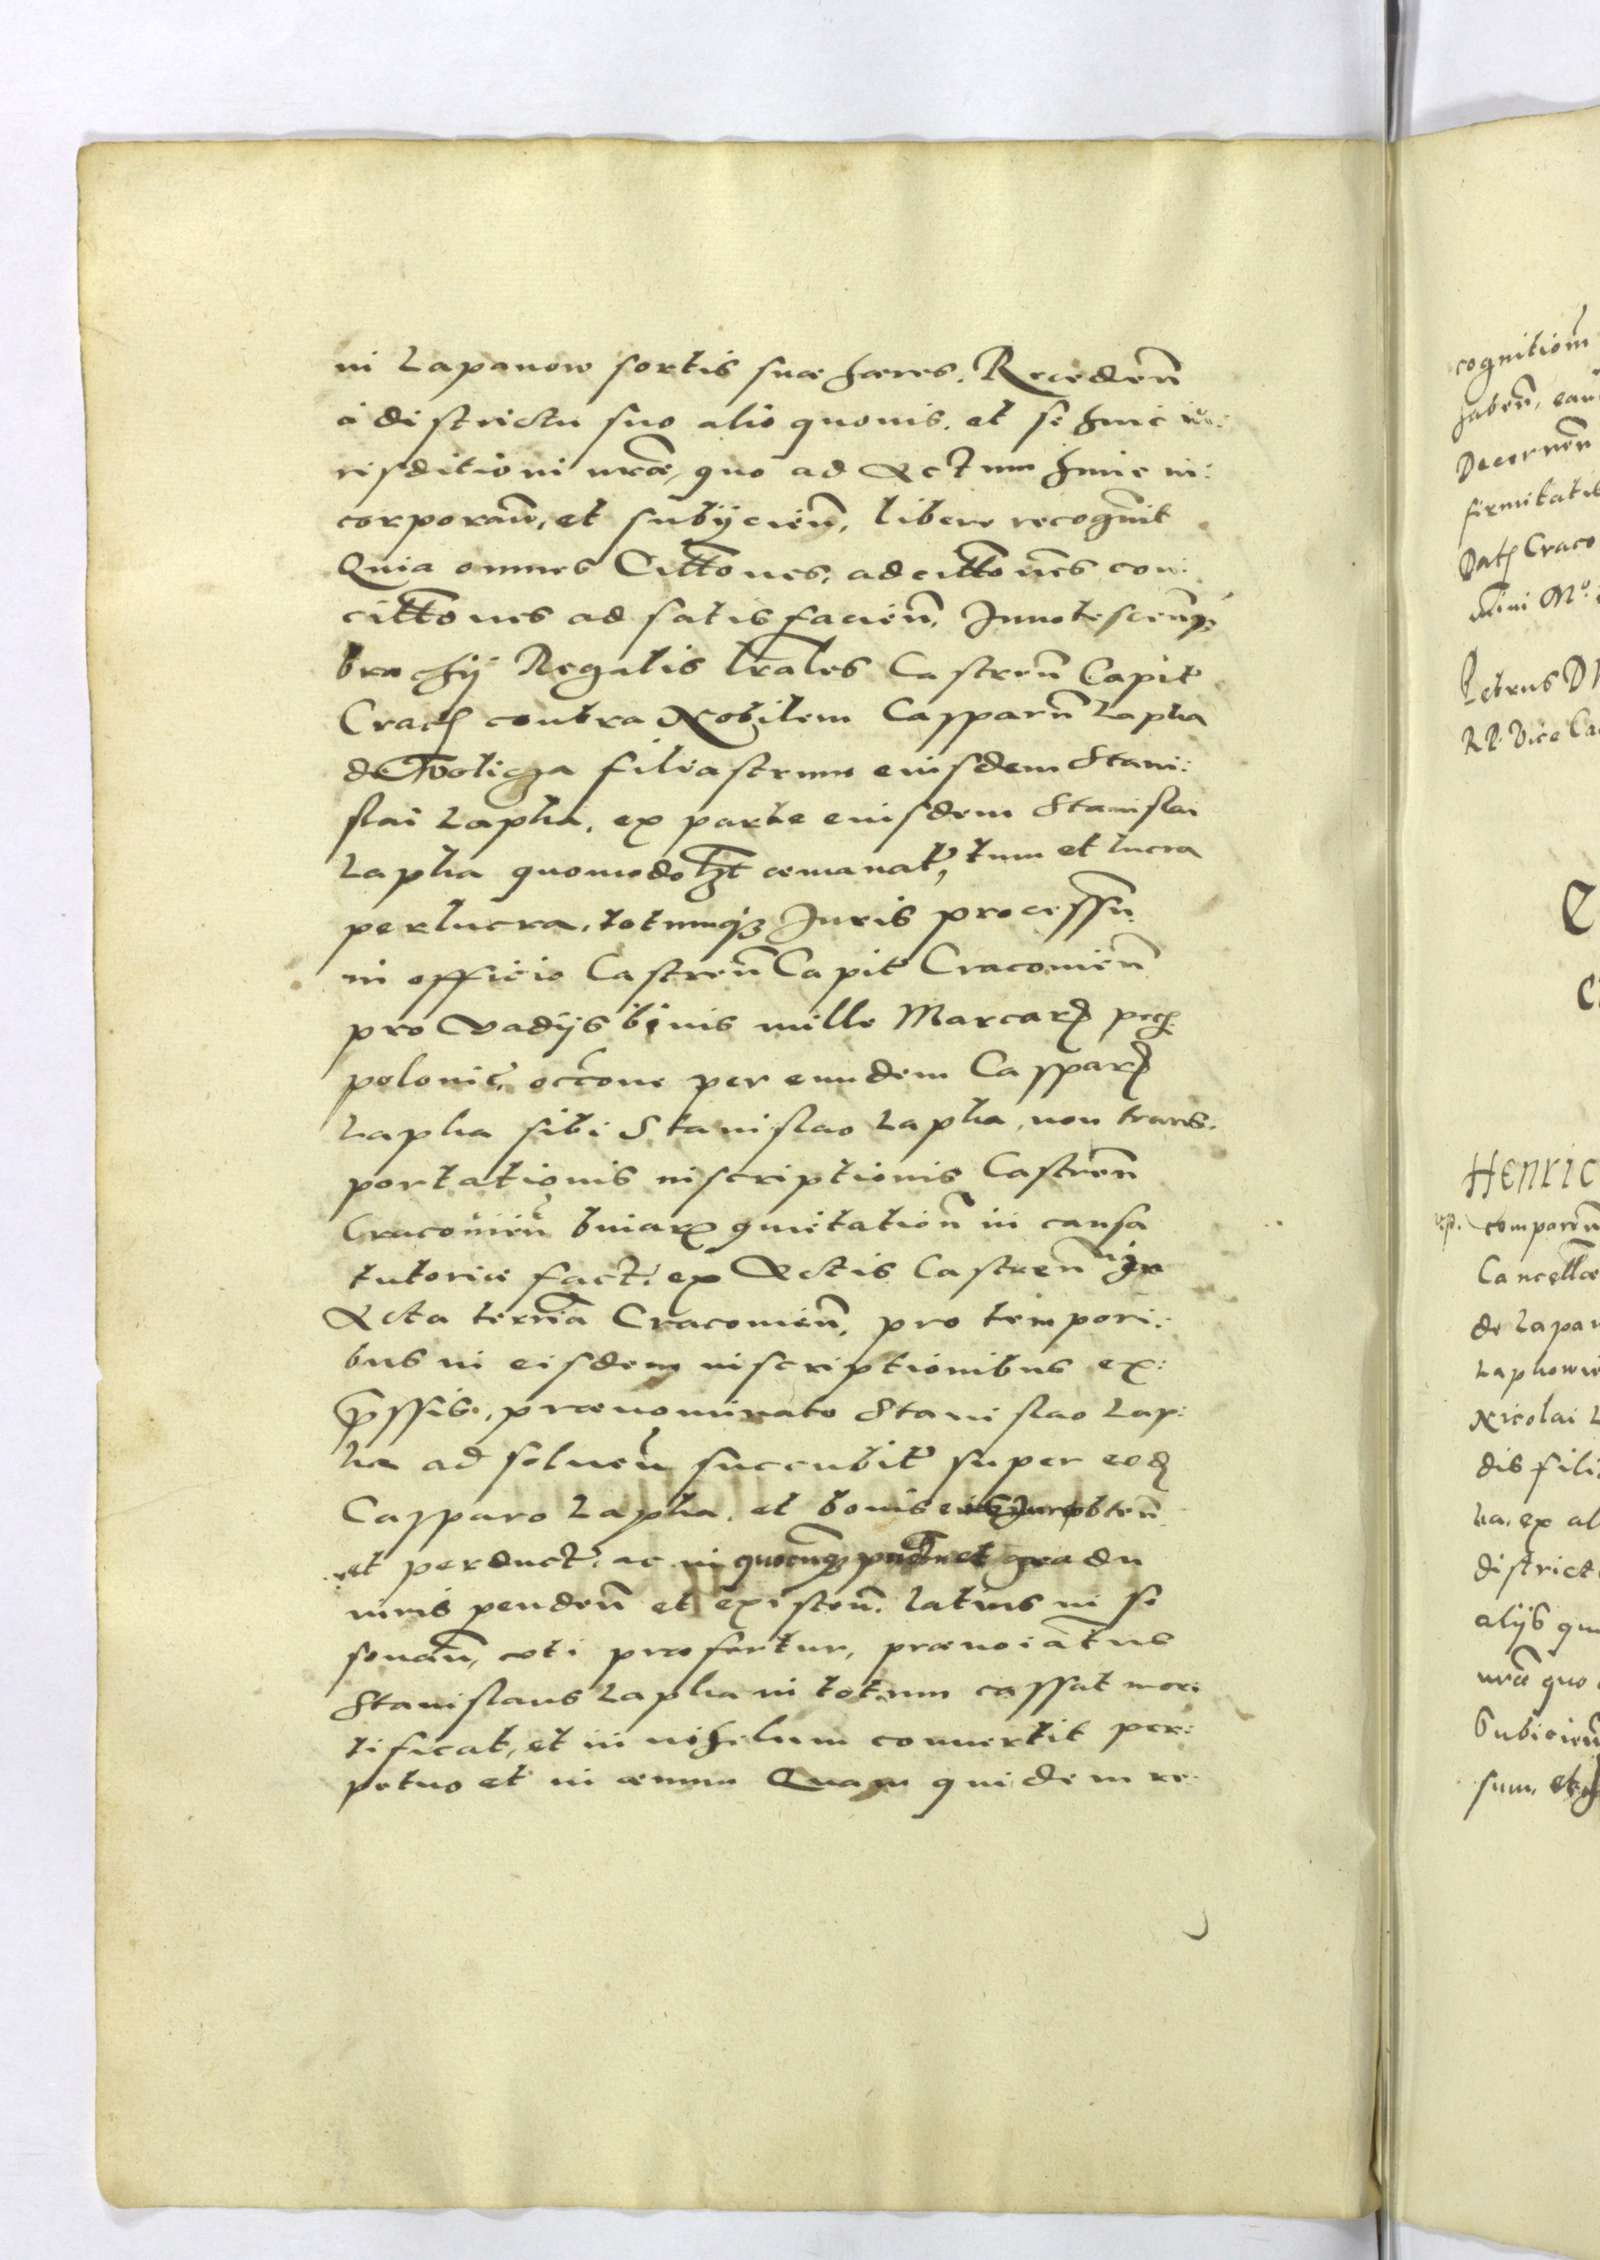 in Lapanow sortis suæ hæres. Receden̄
à districtu suo alio quouis. et se huic iu:
risditioni nr̄æ, quo ad Actum hunc in:
corporan̄, et subijcien̄, libere recogn̄it
Quia omnes Citt̄ones, adcitt̄ones con:
citt̄ones ad satisfacien̄, Innotescen̄q̃
brachij Regalis lr̄ales Castren̄ Capit
Crac̄ contra Nobilem Casparū Lapka
de Wolicza filiastrum eiusdem Stani:
slai Lapka, ex parte eiusdem Stanislai
Lapka quomodol̄t æmanat, tum et lucra
per lucra, totumq₃ Iuris processū
in officio Castren̄ Capit Cracouien̄
pro Vadijs binis mille Marcar̄ pec̄
polonic̄, occ̄one per eundem Caspar̄
Lapka sibi Stanislao Lapka, non trans:
portationis inscriptionis Castren̄
Cracouien̄ binar̄ quietation̄ in causa
tutoriæ fact. ex Actis Castren̄ in
Acta terrn̄a Cracouien̄, pro tempori:
bus in eisdem inscriptionibus ex:
p̄ssis, prænominato Stanislao Lap:
ka ad soluen̄ succubit super eod̄
Casparo Lapka, et bonis eius Iure obten̄
et perduct. ac in quocunq₃ gradu
iuris penden̄ et existen̄. latius in se
sonan̄, uti præfertur, prænoiatus
Stanislaus Lapka in totum cassat mor:
tificat, et in nihilum conuertit per:
petuo et in æuum Quam quidem re:
cognitionē
Decernen̄
firmitatis
Dat̄ Craco
Petrus D
RP. Vice Ca
HENRIC
comparen̄
Cancellæ
de Lapan
Lapkowie
Nicolai L
dis fili
ka, ex al
district
alijs qu
nr̄æ quo
Subicien̄
sum, et